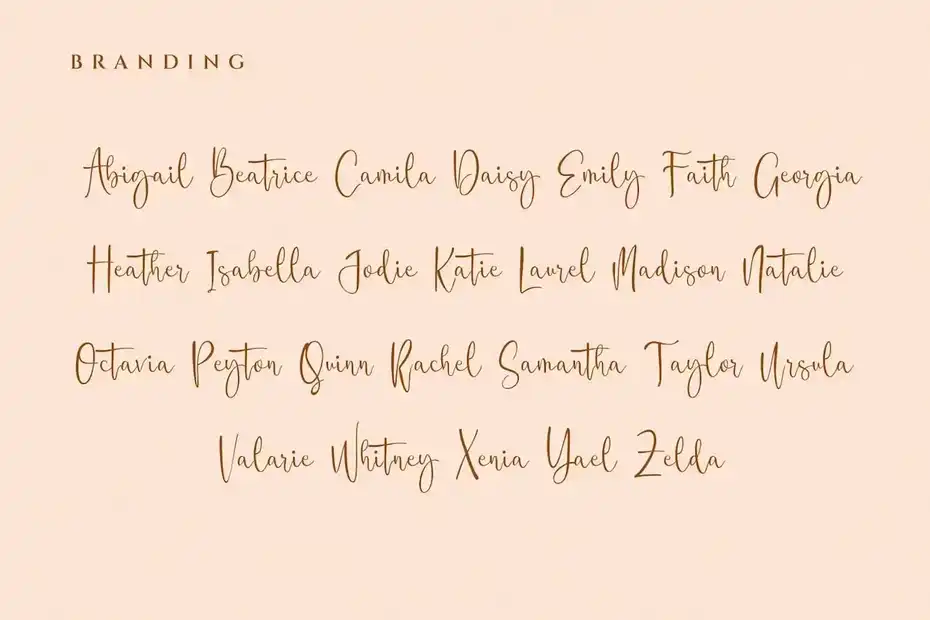 BRANDING
Abigail Beatrice Camila Daisy Emily Faith Georgia
Heather Isabella Jodie Katie Laurel Madison Natalie
Octavia Peyton Quinn Rachel Samantha Taylor Ursula
Valarie Whitney Xenia Yael Zelda